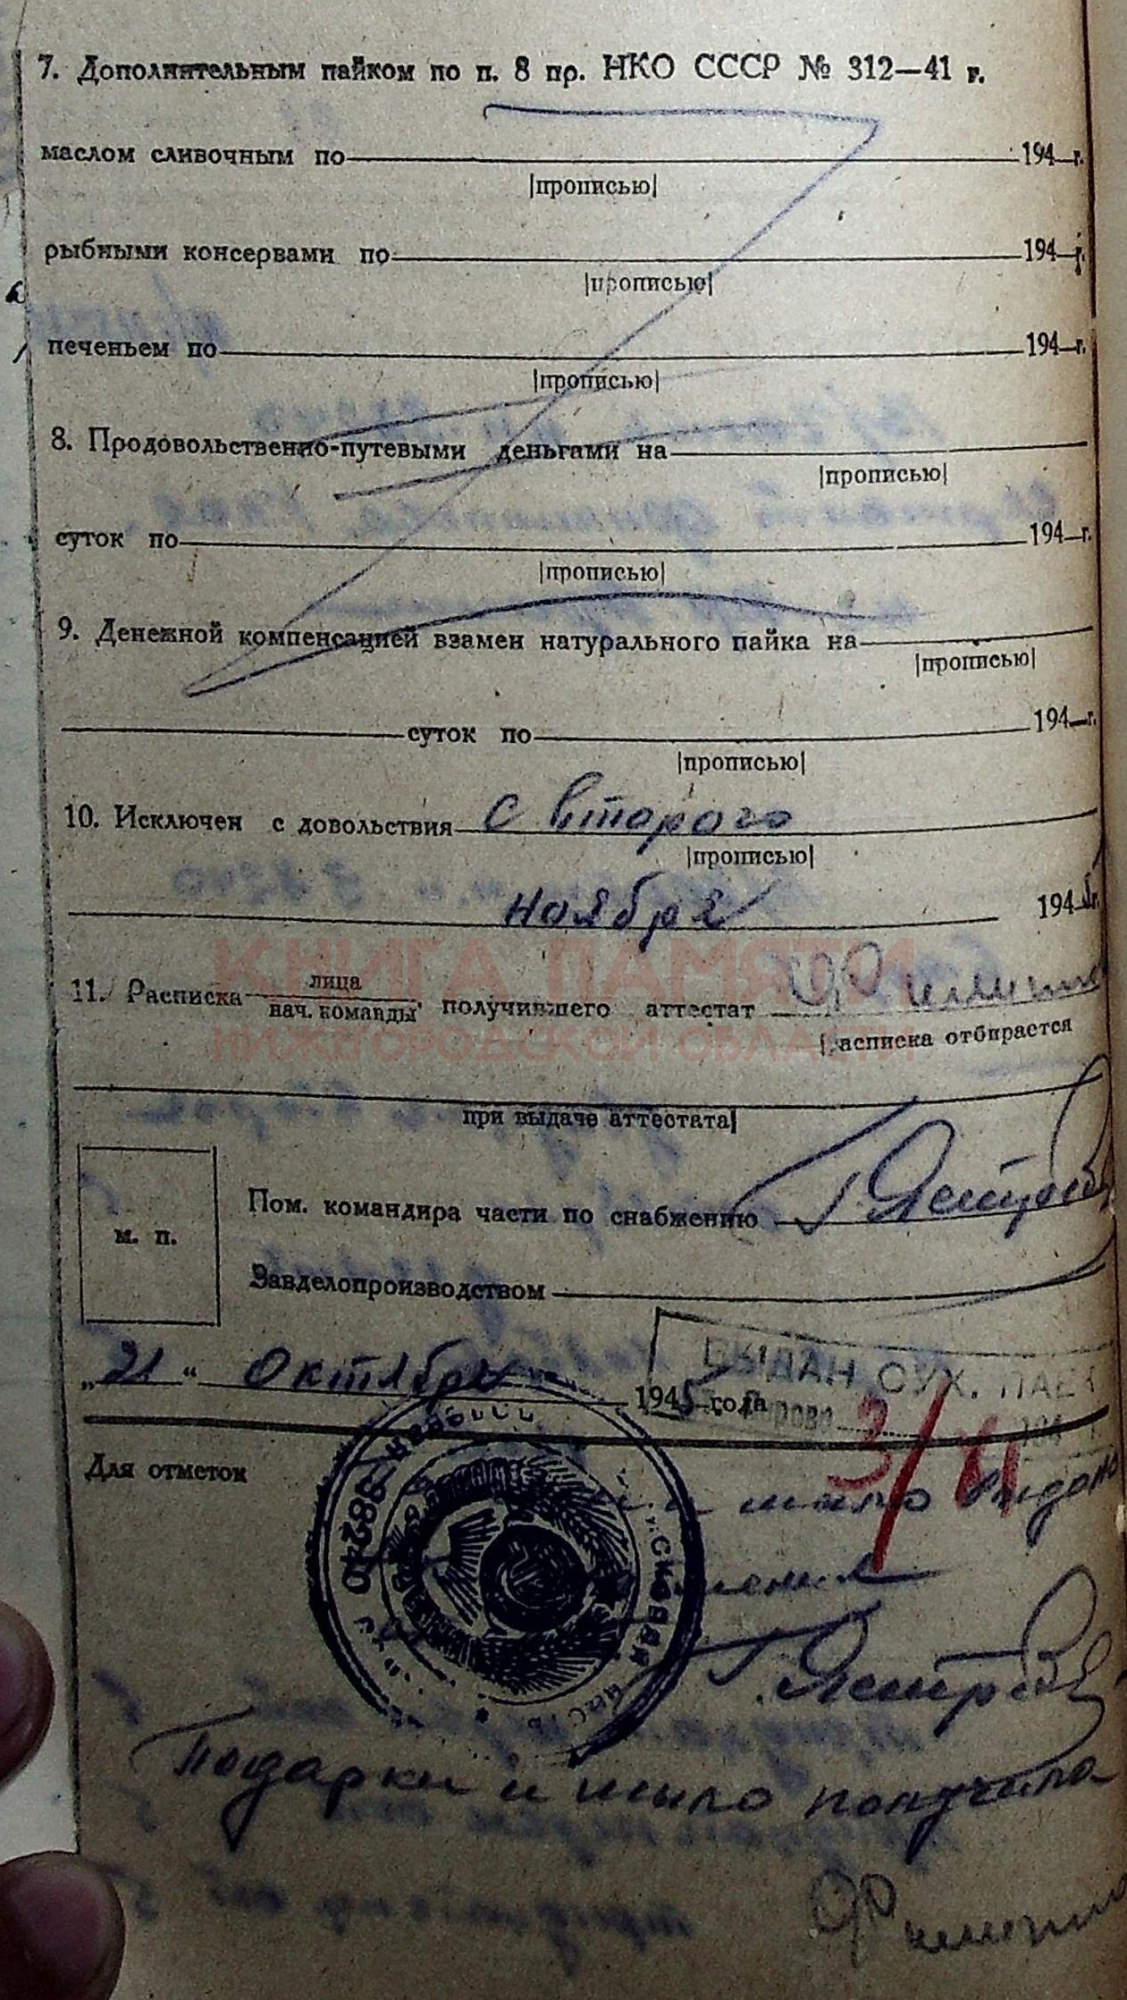 7. Дополнительным пайком по п. 8 пр. НКО СССР № 312—41 г.
маслом сливочным по 194 г.
|прописью|
рыбными консервами по 194 г.
|прописью|
печеньем по 194 г.
|прописью|
8. Продовольственно-путевыми деньгами на
|прописью|
суток по 194 г.
|прописью|
9. Денежной компенсацией взамен натурального пайка на
|прописью|
суток по 194 г.
|прописью|
10. Исключен с довольствия с второго
|прописью|
ноября 1945 г.
КНИГА ПАМЯТИ
НИЖЕГОРОДСКОЙ ОБЛАСТИ
11. Расписка лица
нач. команды, получившего аттестат
|расписка отбирается
при выдаче аттестата|
Пом. командира части по снабжению
м. п.
Завделопроизводством
ВЫДАН СУХ. ПАЕК
„21“ Октября 1945 года
3/XI
Для отметок
и мыло выдано
38240
Подарки и мыло получила